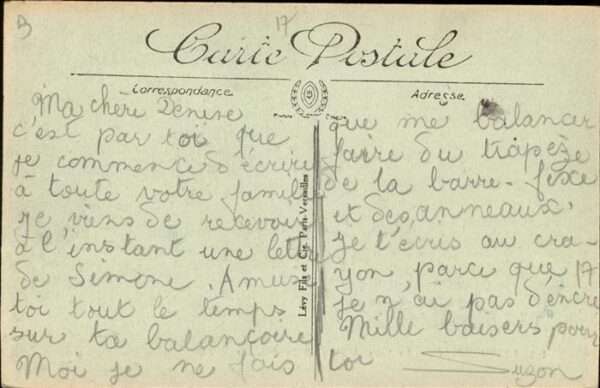 B
17
Carte Postale
Correspondance
Adresse
Ma chère Denise
c'est par toi que
je commence d'écrire
à toute votre famille
je viens de recevoir
à l'instant une lettre
de Simone. Amuse
toi tout le temps
sur ta balançoire
Moi je ne fais
que me balancer
faire du trapèze
de la barre-fixe
et des anneaux.
je t'écris au cra-
yon parce que 17
je n'ai pas d'encre
Mille baisers pour
toi Suzon
Lévy Fils et Cie, Paris-Versailles